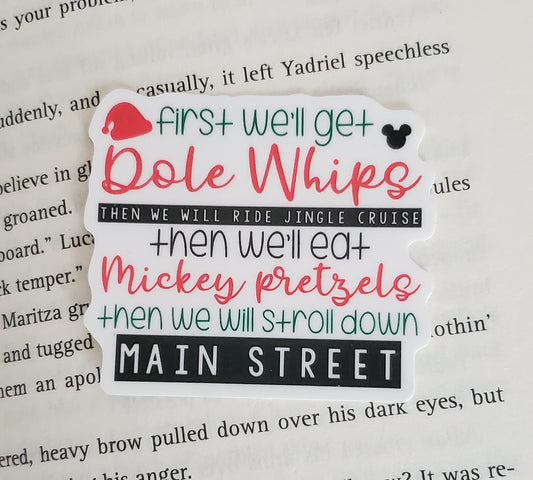 s your problem
uddenly, and casually, it left Yadriel speechless
first we'll get
Dole Whips
THEN WE WILL RIDE JINGLE CRUISE
then we'll eat
Mickey pretzels
then we will stroll down
MAIN STREET
elieve in
ules
groaned.
board." Luca
k temper."
Maritza
lothin'
and tugged
em an apol
ered, heavy brow pulled down over his dark eyes, but
his anger.
? It was re-